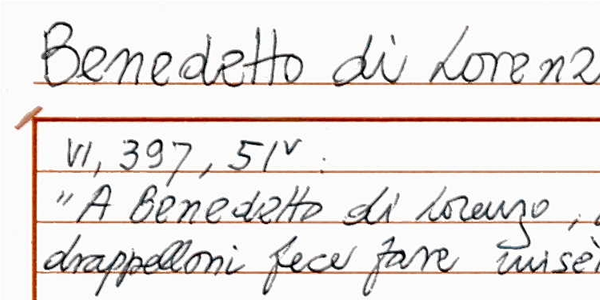 Benedetto di Lorenz
VI, 397, 51v.
"A Benedetto di Lorenzo,
drappelloni fece fare misè